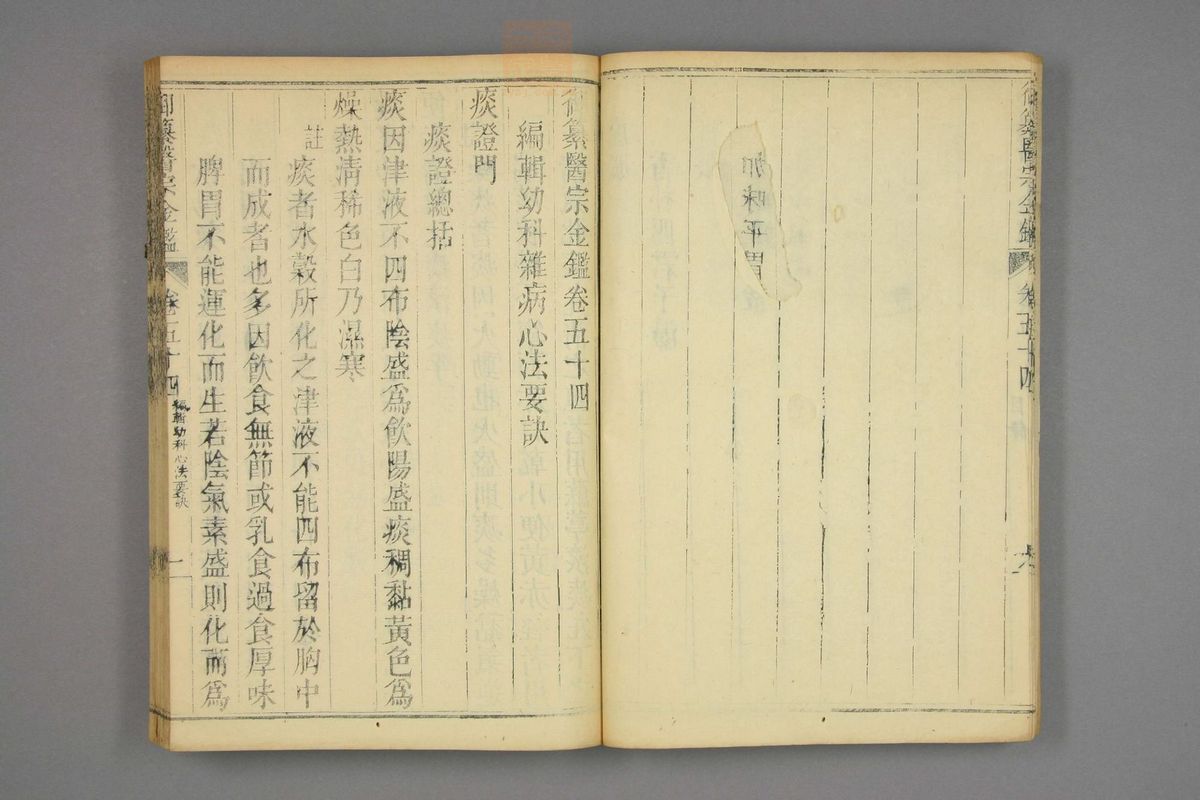 御纂醫宗金鑑 卷五十四
加味平胃散
御纂醫宗金鑑卷五十四
編輯幼科雜病心法要訣
痰證門
痰證總括
痰因津液不四布陰盛爲飲陽盛痰稠黏黃色爲
燥熱清稀色白乃濕寒
註 痰者水穀所化之津液不能四布留於胸中
而成者也多因飲食無節或乳食過食厚味
脾胃不能運化而生若陰氣素盛則化而爲
御纂醫宗金鑑 卷五十四 編輯幼科心法要訣 一